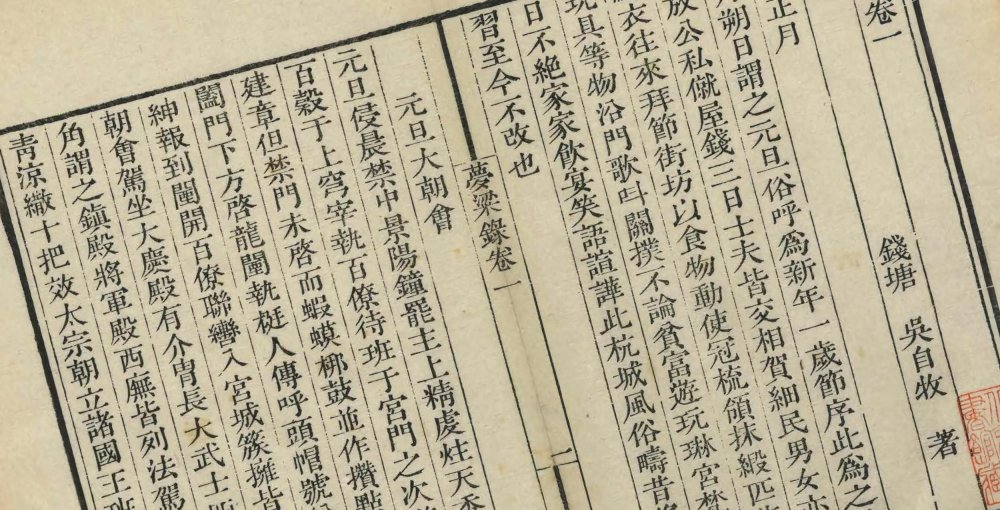 卷一
錢塘 吳自牧 著
正月
朔日謂之元旦俗呼爲新年一歲節序此爲之
放公私僦屋錢三日士夫皆交相賀細民男女亦
衣往來拜節街坊以食物動使冠梳領抹緞匹
玩具等物沿門歌叫關撲不論貧富遊玩琳宮梵
日不絕家家飲宴笑語諠譁此杭城風俗疇昔
習至今不改也
夢粱錄卷一
一
元旦大朝會
元旦侵晨禁中景陽鐘罷主上精虔炷天香
百穀于上穹宰執百僚待班于宮門之次
建章但禁門未啓而蝦蟆梆鼓並作攢點
闔門下方啓龍闈執梃人傳呼頭帽號
紳報到闈開百僚聯轡入宮城簇擁皆
朝會駕坐大慶殿有介冑長大武士
角謂之鎮殿將軍殿西廡皆列法駕
青涼繖十把效太宗朝立諸國王班